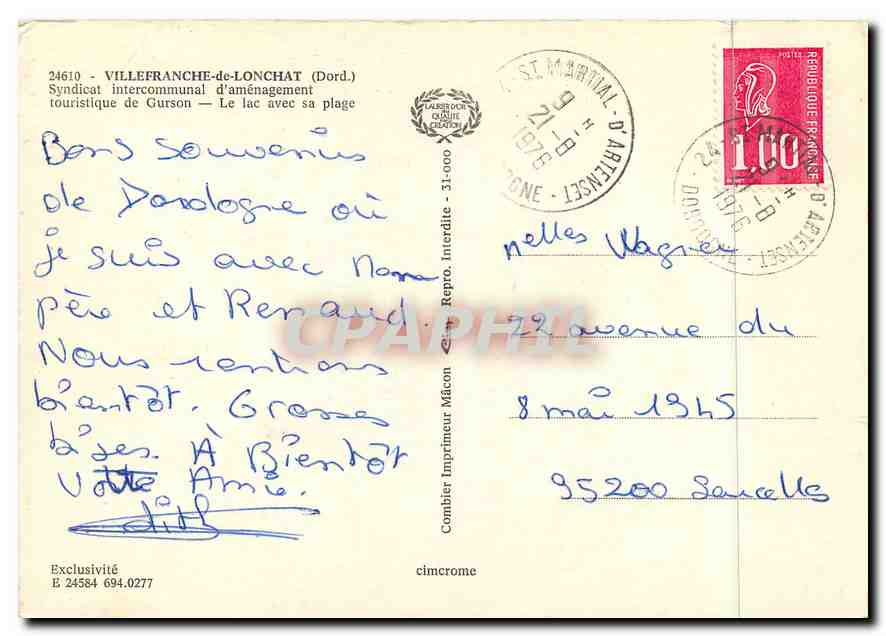 24610 - VILLEFRANCHE-de-LONCHAT (Dord.)
Syndicat intercommunal d'aménagement
touristique de Gurson — Le lac avec sa plage
Bons souvenirs
de Dordogne où
je suis avec
père et Renaud.
Nous rentrons
bientôt. Grosses
bises. À Bientôt
Votre Amie.
Edith
Exclusivité
E 24584 694.0277
LAURIER D'OR
DE
QUALITÉ
CRÉATION
Combier Imprimeur Mâcon Repro. Interdite - 31-000
cimcrome
ST MARTIAL - D'ARTENSET
9 H
21 - 8
1976
POSTES
RÉPUBLIQUE FRANÇAISE
1,00
D'ARTENSET - DORDOGNE
1976
CPAPHIL
Melles Wagner
22 avenue du
8 mai 1945
95200 Sarcelles